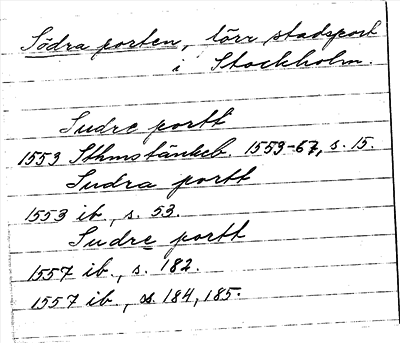 Södra porten, förr stadsport
i Stockholm.
Sudre portt
1553 Sthmstänkeb. 1553-67, s. 15.
Sudra portt
1553 ib., s. 53.
Sudre portt
1557 ib., s. 182.
1557 ib., ss 184, 185.